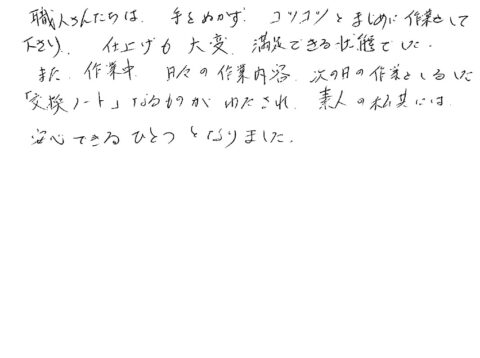 職人さんたちは、手をぬかず、コツコツとまじめに作業をして
下さり、仕上げも大変、満足できる状態でした。
また、作業中、日々の作業内容、次の日の作業としるした
「交換ノート」なるものがわたされ、素人の私共には、
安心できるひとつとなりました。